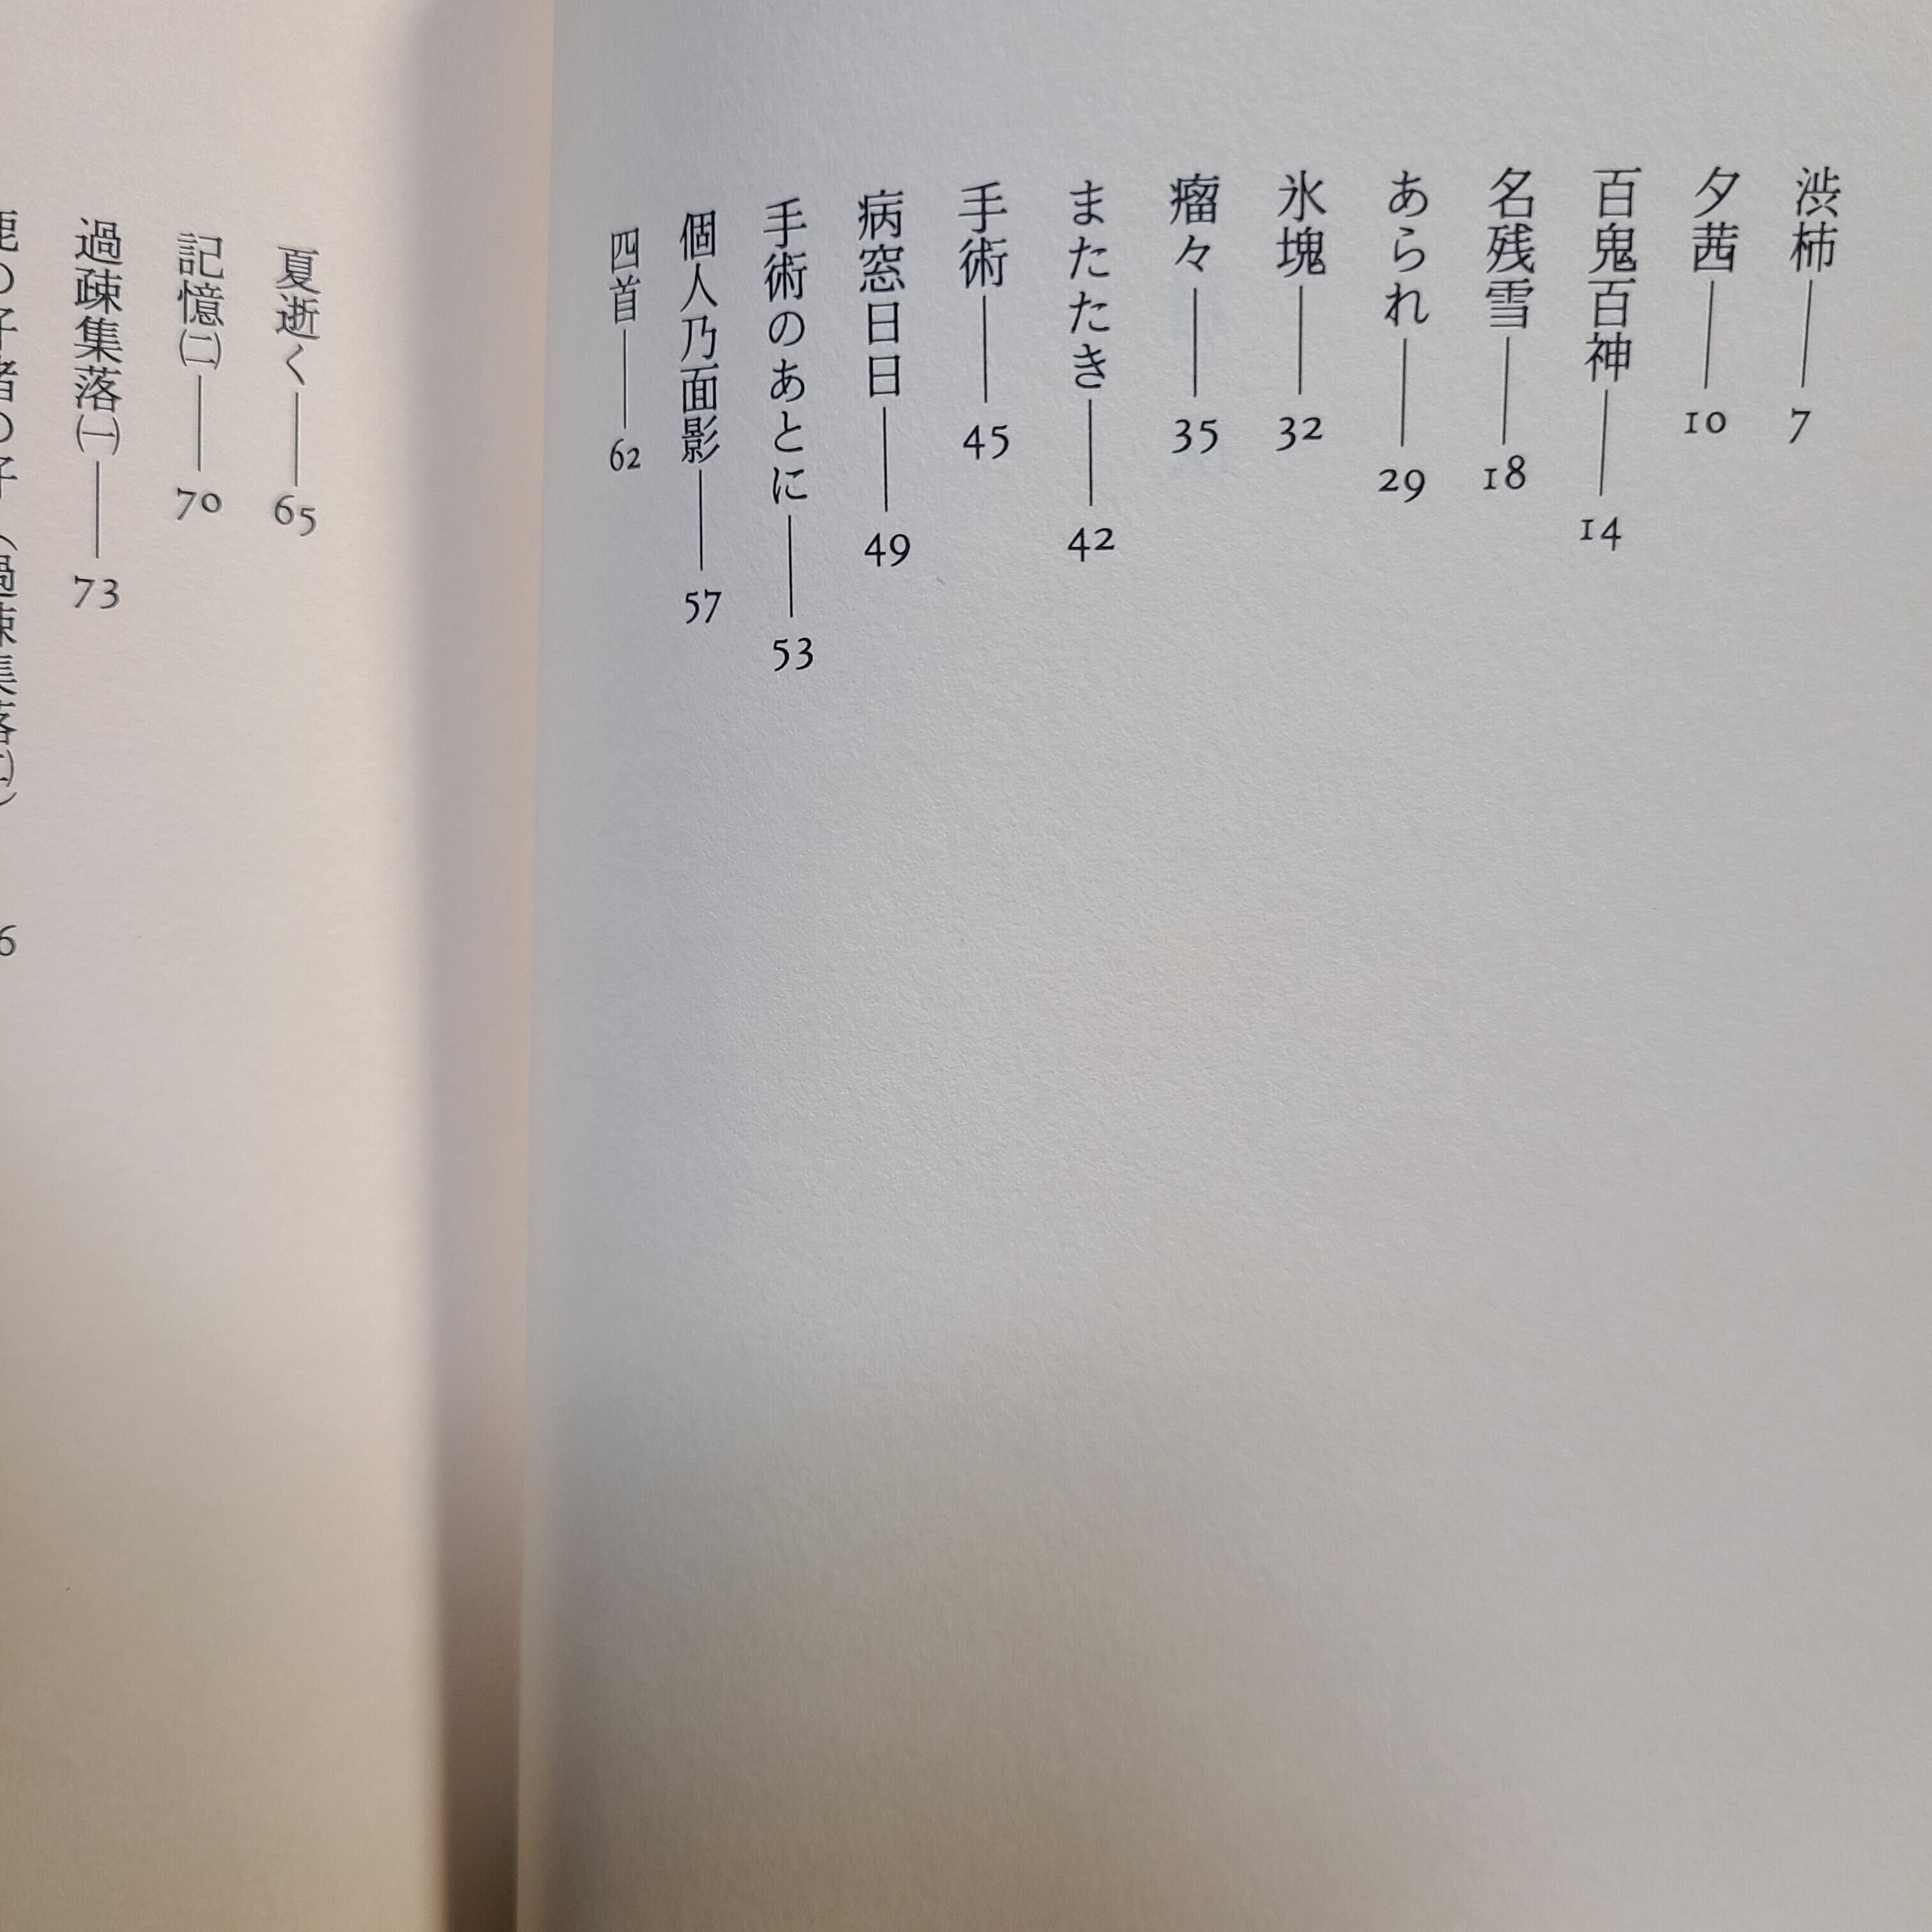 渋柿——7
夕茜——10
百鬼百神——14
名残雪——18
あられ——29
氷塊——32
瘤々——35
またたき——42
手術——45
病窓日日——49
手術のあとに——53
個人乃面影——57
四首——62
夏逝く——65
記憶㈡——70
過疎集落㈠——73